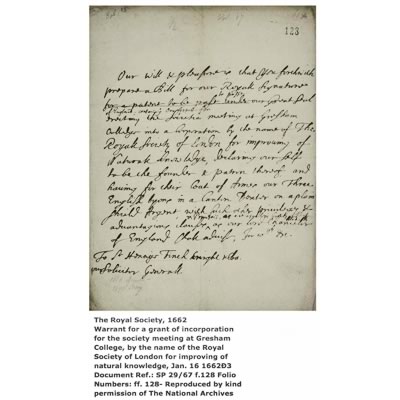 123
Our will & pleasure is that you forthwith
prepare a Bill for our Royall Signature
for a patent to be past under our Great Seal
erecting the Societie meeting at Gresham
College into a Corporation by the name of The
Royall Society of London for improving of
Naturall knowledge, declaring our self
to be the founder & patron thereof and
having for their Coat of Armes our Three
English Lyons in a Canton Dexter on a plain
Shield Argent with such other priviledges &
advantagious clauses as our Lord Chancellor
of England shall advise, Given &c.
To Sr Heneage Finch knight &
our Sollicitor Generall
The Royal Society, 1662
Warrant for a grant of incorporation
for the society meeting at Gresham
College, by the name of the Royal
Society of London for improving of
natural knowledge, Jan. 16 1662D3
Document Ref.: SP 29/67 f.128 Folio
Numbers: ff. 128- Reproduced by kind
permission of The National Archives